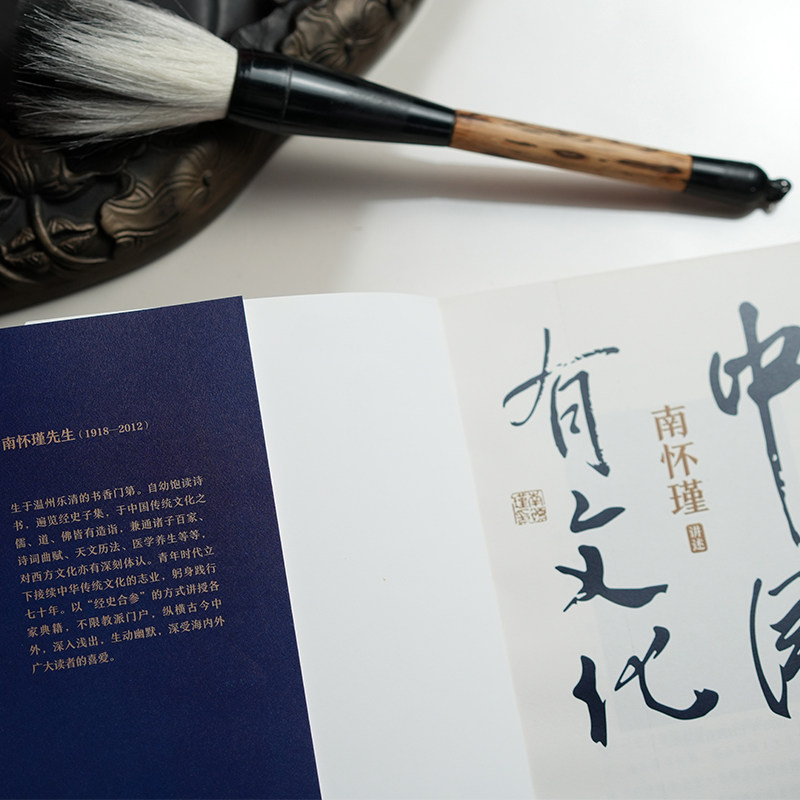 南怀瑾先生（1918—2012）
生于温州乐清的书香门第。自幼饱读诗
书，遍览经史子集，于中国传统文化之
儒、道、佛皆有造诣，兼通诸子百家、
诗词曲赋、天文历法、医学养生等等，
对西方文化亦有深刻体认。青年时代立
下接续中华传统文化的志业，躬身践行
七十年。以“经史合参”的方式讲授各
家典籍，不限教派门户，纵横古今中
外，深入浅出，生动幽默，深受海内外
广大读者的喜爱。
中国
南怀瑾
讲述
有文化